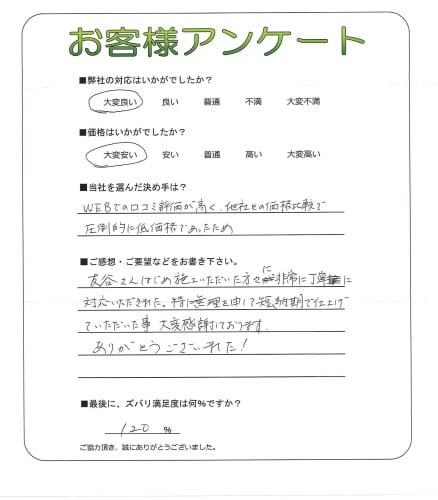 お客様アンケート
■弊社の対応はいかがでしたか？
大変良い 良い 普通 不満 大変不満
■価格はいかがでしたか？
大変安い 安い 普通 高い 大変高い
■当社を選んだ決め手は？
WEBでの口コミ評価が高く、他社との価格比較で
圧倒的に低価格であったため
■ご感想・ご要望などをお書き下さい。
友谷さんはじめ施工いただいた方々に非常に丁寧に
対応いただきました。特に無理を申して短納期で仕上げ
ていただいた事 大変感謝しております。
ありがとうございました！
■最後に、ズバリ満足度は何%ですか？
120 %
ご協力頂き、誠にありがとうございました。